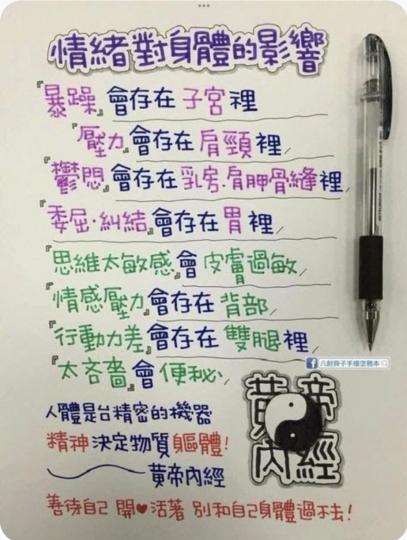 情緒對身體的影響
『暴躁』會存在 子宮裡
『壓力』會存在 肩頸裡
『鬱悶』會存在乳房.肩胛骨縫裡
『委屈.糾結』會存在 胃裡
『思維太敏感』會 皮膚過敏
『情感壓力』會存在 背部
『行動力差』會存在 雙腿裡
『太吝嗇』會 便秘
人體是台精密的機器
精神 決定物質 軀體!
黃帝內經
黃帝
內經
善待自己 開❤活著 別和自己身體過不去!